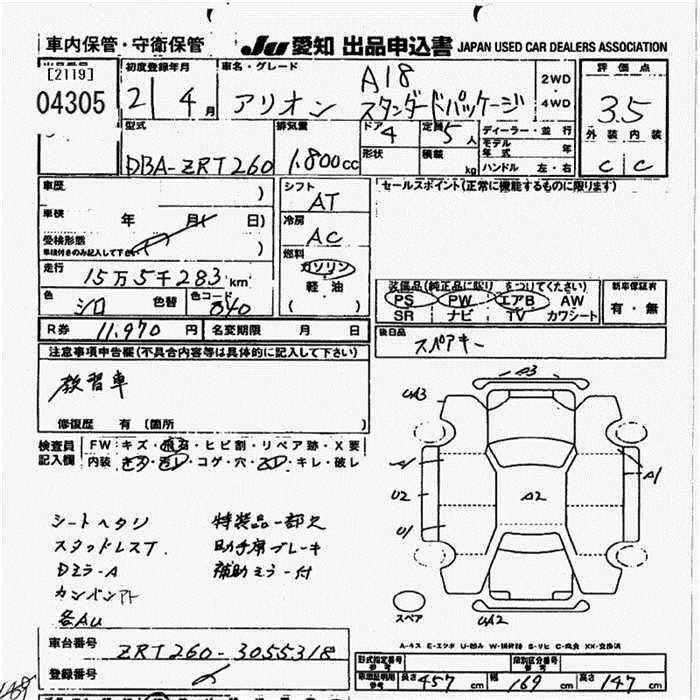 車内保管・守衛保管 Ju 愛知 出品申込書 JAPAN USED CAR DEALERS ASSOCIATION
[2119]
04305
初度登録年月
21 4月
車名・グレード
アリオン A18 スタンダードパッケージ
2WD・4WD
評価点
3.5
外装 内装
C C
型式
DBA-ZRT260
排気量
1.800cc
ドア 4
形状
定員 5人
積載 kg
ディーラー・並行
モデル年式 年
ハンドル 左・右
車歴 )
車検 年 月( 日)
受検形態
車検付きのみ記入して下さい ( )
走行
15万5千283km
色 シロ 色替 色コード 040
シフト
AT
冷房
AC
燃料
ガソリン
軽・油
( )
セールスポイント(正常に機能するものに限ります)
装備品(純正品に限り をつけてください)
PS PW エアB AW
SR ナビ TV カワシート
新車保証有
有・無
R券 11,970円 名変期限 月 日
後日品
スペアキー
注意事項申告欄(不具合内容等は具体的に記入して下さい)
教習車
修復歴 有 [箇所 ]
検査員記入欄
FW:キズ・飛石・ヒビ割・リペア跡・X要
内装:キズ・汚レ・コゲ・穴・スレ・キレ・破レ
シートヘタリ 特装品一部欠
スタッドレスT. 助手席ブレーキ
Dミラ-A 補助ミラー付
各AU
A3
UA3
A1
U2
A2
U1
UA2
スペア
A-キズ E-エクボ U-凹み W-補修跡 S-サビ C-腐食 XX-交換済
車台番号
ZRT260-3055318
登録番号
型式指定番号 参考
類別区分番号 参考
車検証明用 参考 長さ 457cm 幅 169cm 高さ 147cm